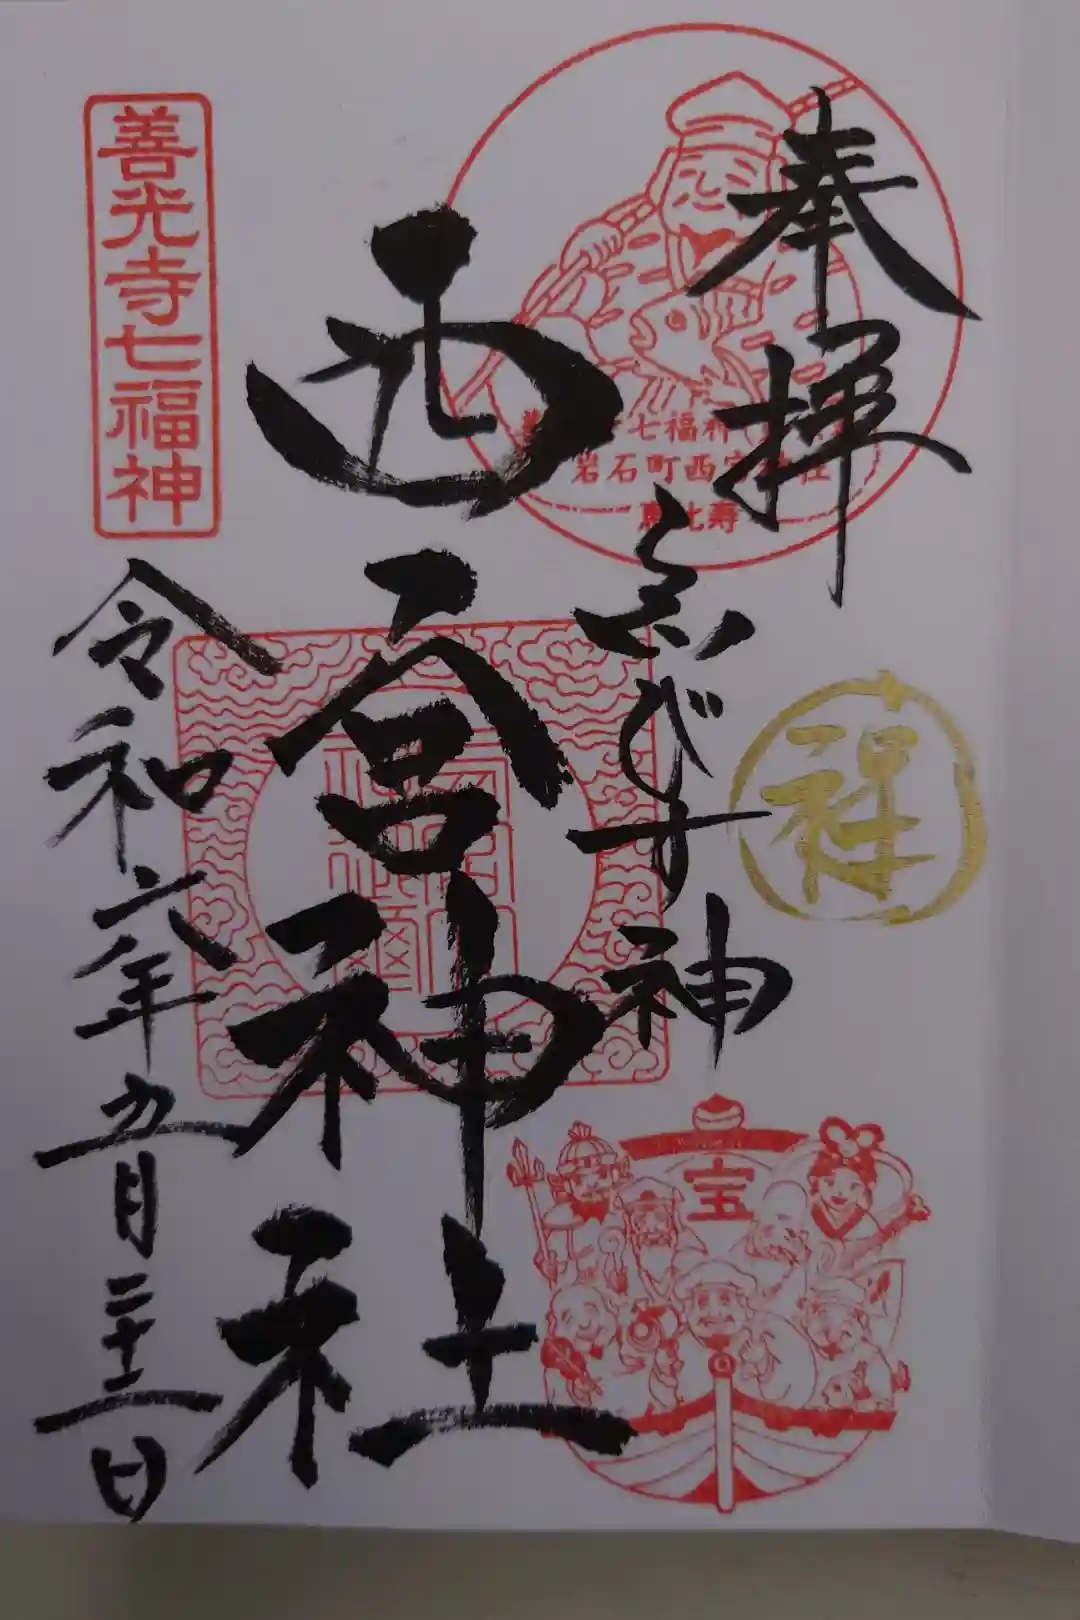 奉拝
善光寺七福神
岩石町西宮神社
恵比寿
ゑびす神
西宮神社
宝
善光寺七福神
令和六年五月二十二日